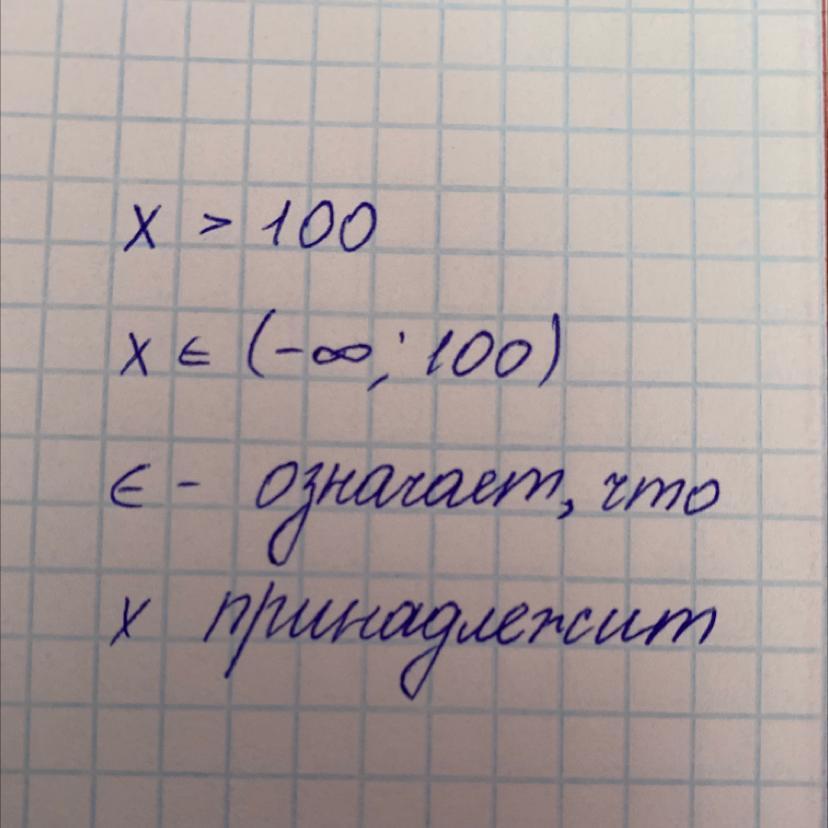 x > 100
x ∈ (-∞; 100)
∈ - означает, что
x принадлежит